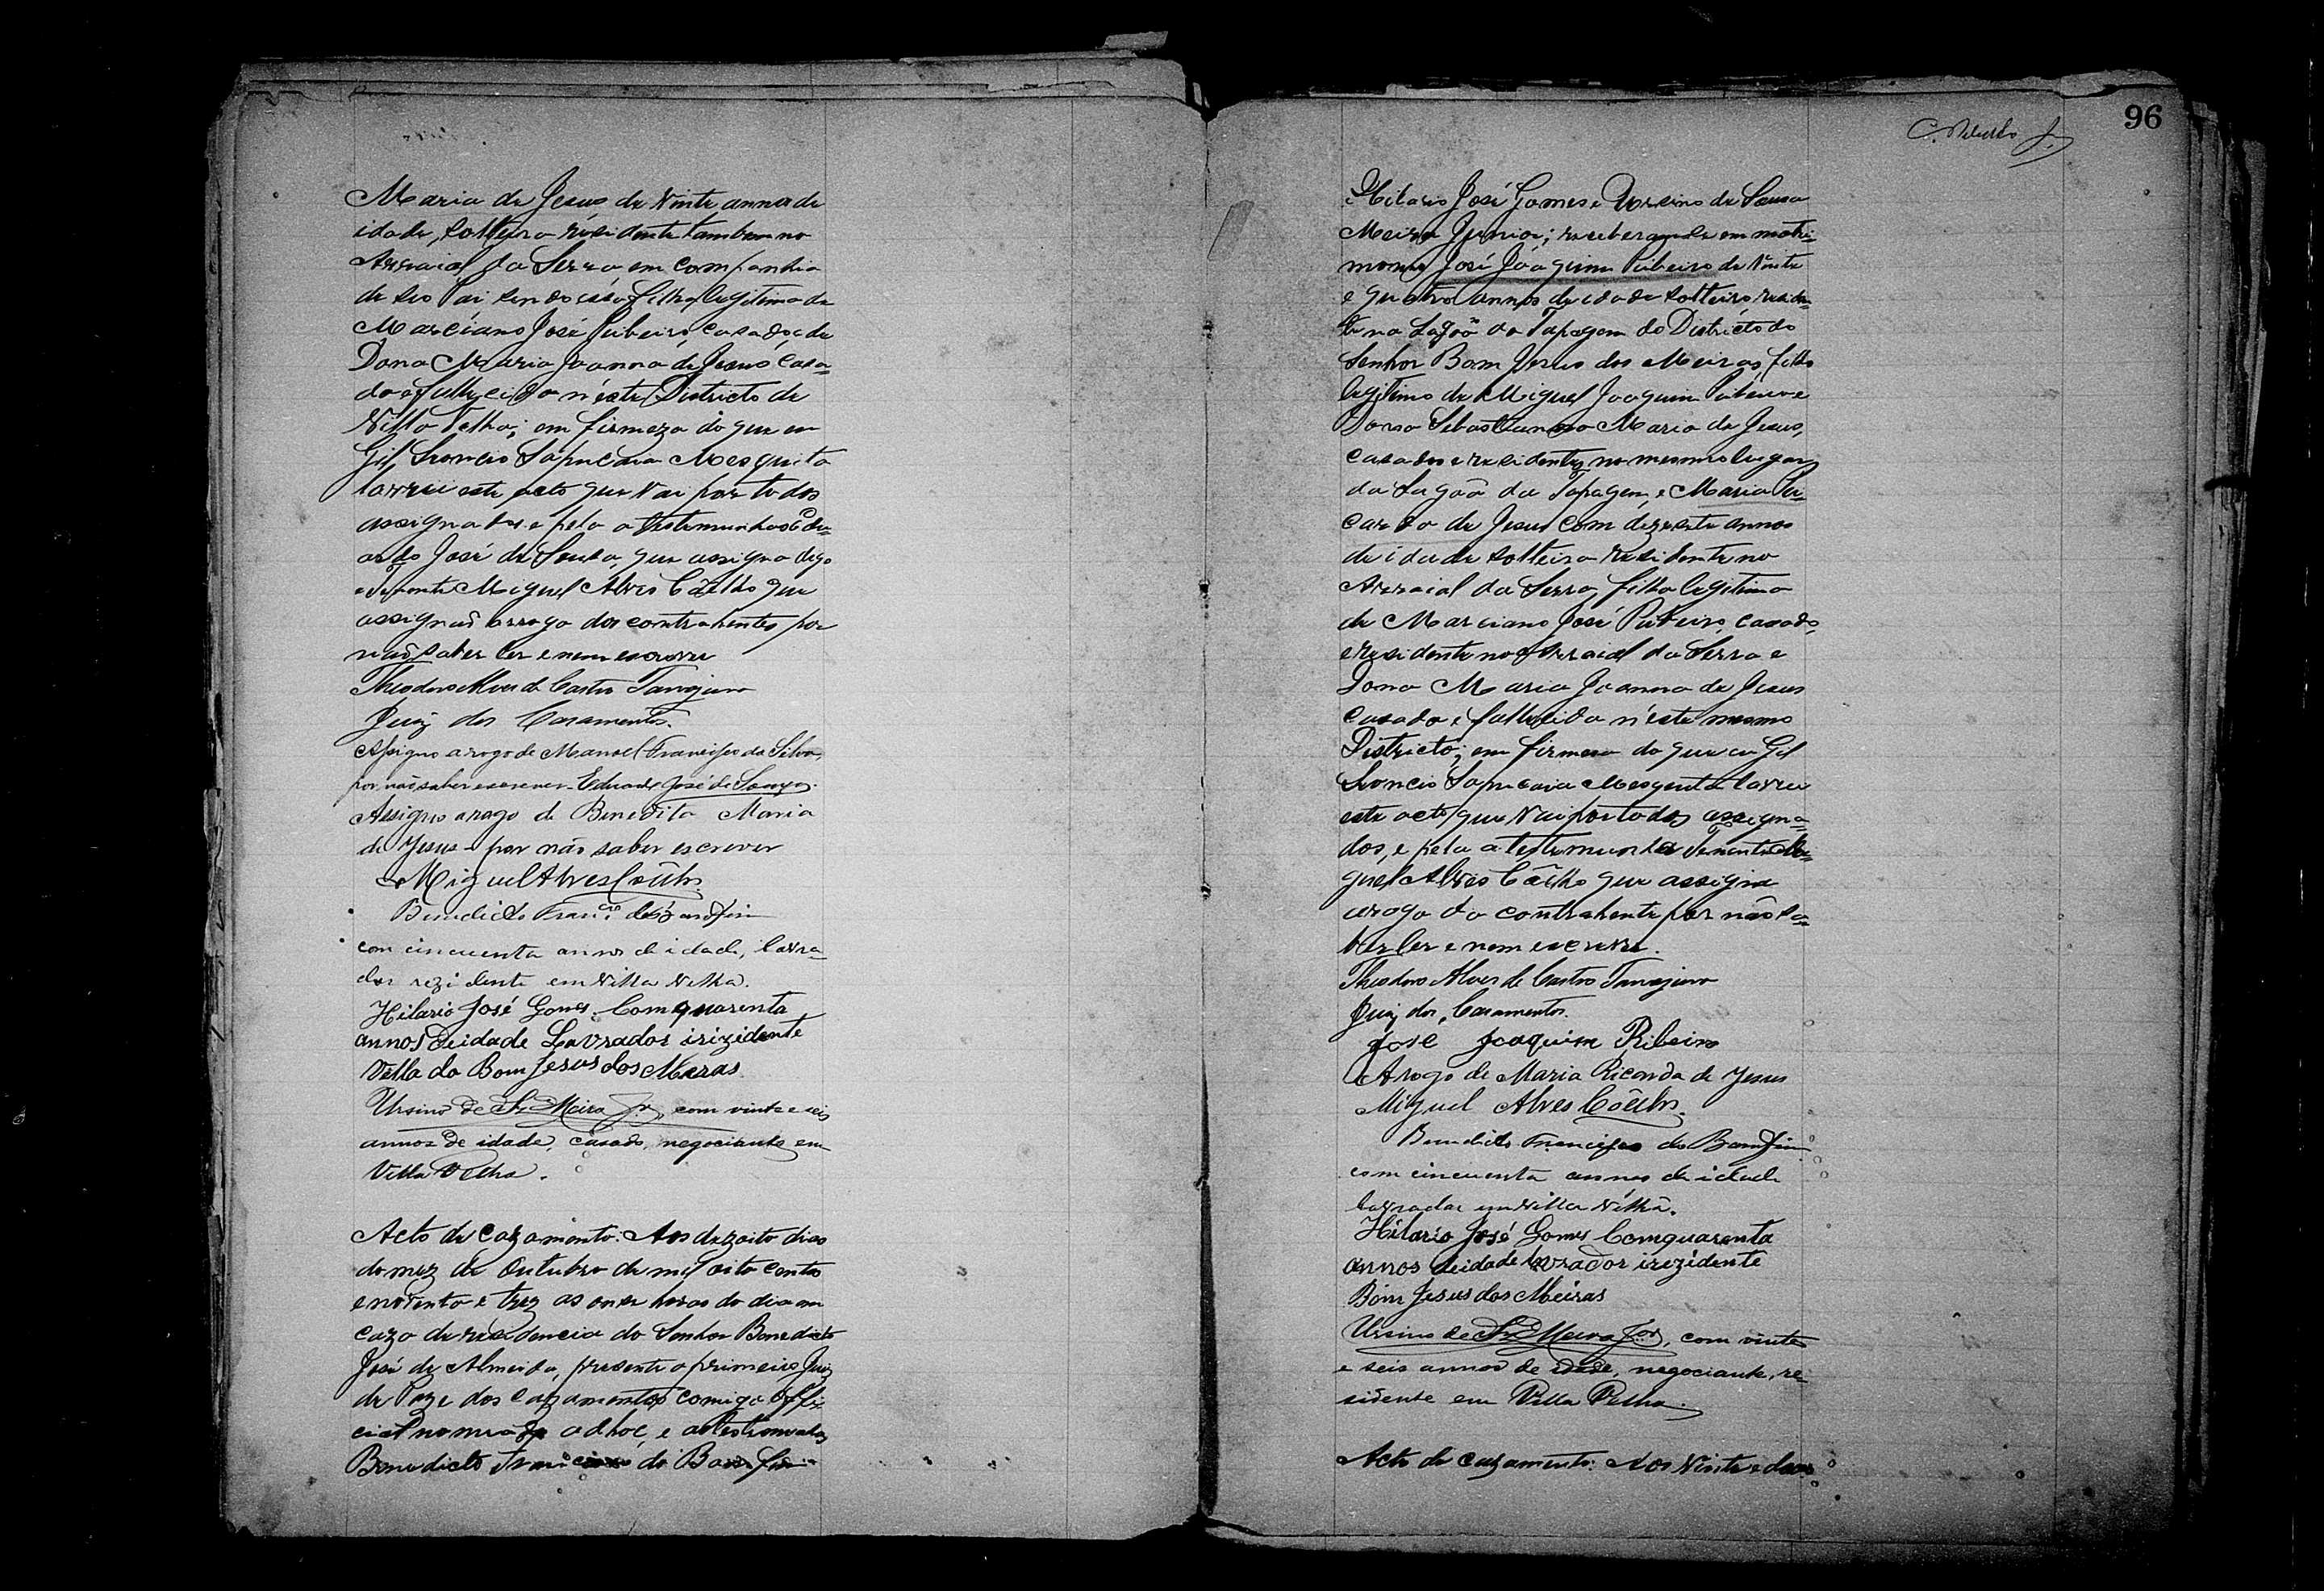 Maria de Jesus de Vinte annos de
idade, solteira residente tambem no
Arraial da Serra em companhia
de seo Pai sendo essa filha legitima de
Marciano José Ribeiro, casado, e de
Dona Maria Joanna de Jesus casa=
da e fallecida n'este Districto de
Villa Velha; em firmeza do que eu
Gil Leoncio Sapucaia Mesquita
lavrei este acto que vai por todos
assignados e pela a testemunhas Edu=
ardo José de Souza, que assigna digo
e Tenente Miguel Alves Coêlho que
assignaõ arrogo dos contrahentes por
naõ saber ler e nem escrever
Theodoro Alves de Castro Tanajura
Juiz dos Casamentos.
Assigno a rogo de Manoel Francisco da Silva,
por não saber escrever - Eduardo José de Souza.
Assigno a rogo de Benedita Maria
de Jesus - por não saber escrever
Miguel Alves Coêlho.
Benedicto Franco. do Bomfim
com cincuenta annos de idade, lavra=
dor rezidente em Villa Velha.
Hilario José Gomes. Com quarenta
annos deidade Lavrador irizidente
Villa do Bom Jesus dos Meras
Ursino de Sza. Meira Jor, com vinte e seis
annos de idade, casado, negociante em
Villa Velha.
Acto de cazamento. Aos dezoito dias
do mez de Outubro de mil oito centos
e noventa e trez as onze horas do dia em
caza de residencia do Senhor Benedicto
José de Almeida, presente o primeiro Juiz
de Paz e dos cazamentos comigo offi
cial nomiado adhoc, e as testemunhas
Benedicto Francisco do Bomfim
96
Hilario José Gomes e Ursino de Sousa
Meira Junior; receberamse em matri=
monio José Joaquim Ribeiro de Vinte
e quatro annos de idade solteiro residen
te na Lagoã da Tapagem do Districto do
Senhor Bom Jesus dos Meiras, filho
legitimo de Miguel Joaquim Ribeiro e
Dona Sebastianna Maria de Jesus,
casados e residentes no mesmo lugar
da Lagoã da Tapagem, e Maria Ri=
carda de Jesus com dezesete annos
de idade solteira residente no
Arraial da Serra, filha legitima
de Marciano José Ribeiro, casado,
e residente no Arraial da Serra e
Dona Maria Joanna de Jesus
casada e fallecida n'este mesmo
Districto; em firmesa do que eu Gil
Leoncio Sapucaia Mesquita lavrei
este acto que vai por todos assigna=
dos, e pela a testemunha Tenente Mi=
guel Alves Coêlho que assigna
arogo da contrahente por não sa=
ber ler e nem escrever.
Theodoro Alves de Castro Tanajura
Juiz dos Casamentos.
José Joaquim Ribeiro
Arogo de Maria Ricarda de Jesus
Miguel Alves Coêlho.
Benedicto Francisco do Bomfim
com cincuenta annos de idade
lavrador em Villa Velha.
Hilario José Gomes Com quarenta
annos deidade lavrador irizidente
Bom Jesus dos Meiras
Ursino de Sza. Meira Jor, com vinte
e seis annos de idade, negociante, re=
sidente em Villa Velha.
Acto de cazamento. Aos Vinte e dous